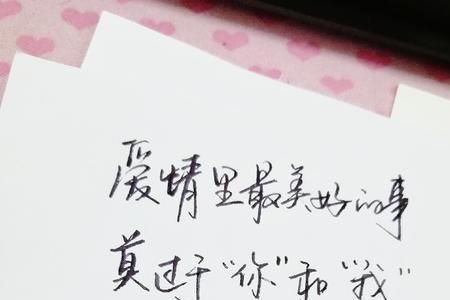 爱情里最美好的事
莫过于“你”和“我”